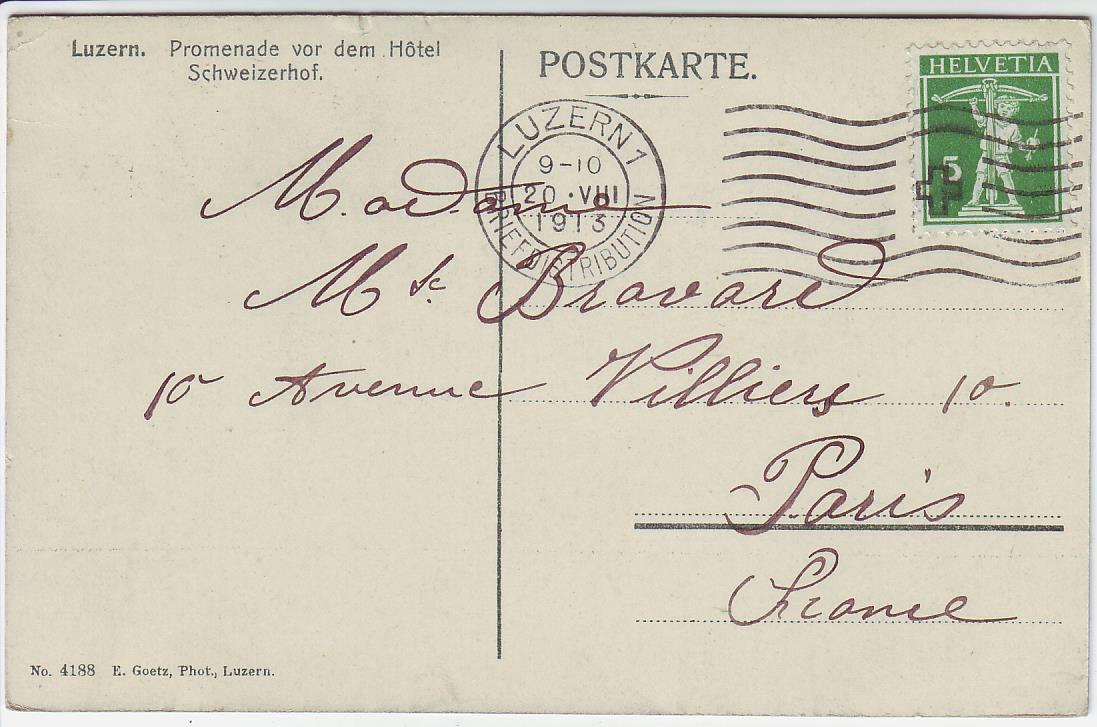 Luzern. Promenade vor dem Hôtel
Schweizerhof.
POSTKARTE.
HELVETIA
5
LUZERN 1
9-10
20.VIII
1913
BRIEFDISTRIBUTION
Madame
Bravard
10 Avenue Villiers 10.
Paris
France
No. 4188 E. Goetz, Phot., Luzern.